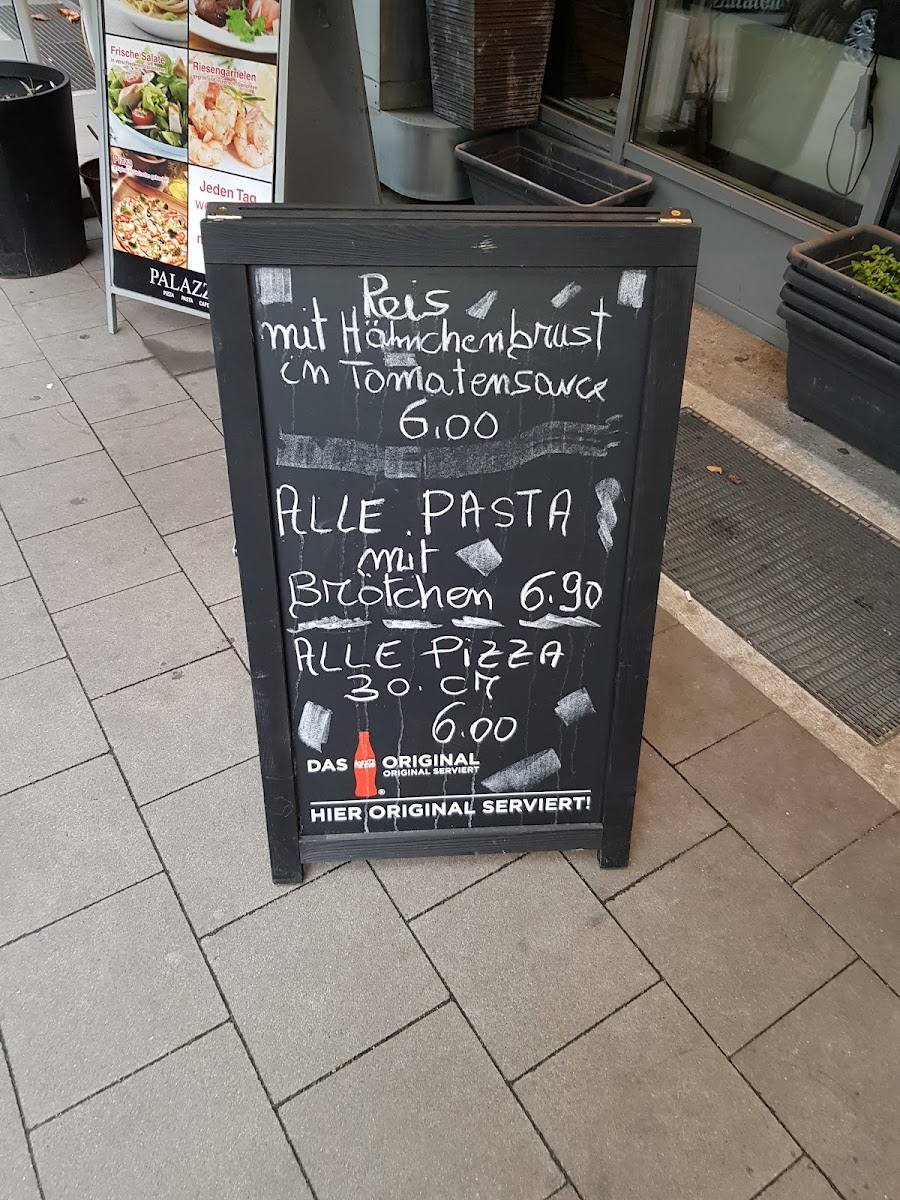 Frische Salate
Riesengarnelen
Pizza
Jeden Tag
PALAZZ
PIZZA PASTA CAFE
Reis
mit Hähnchenbrust
in Tomatensauce
6,00
ALLE PASTA
mit
Brötchen 6.90
ALLE PiZZA
30. CM
6.00
DAS ORIGINAL
ORIGINAL SERVIERT
HIER ORIGINAL SERVIERT!